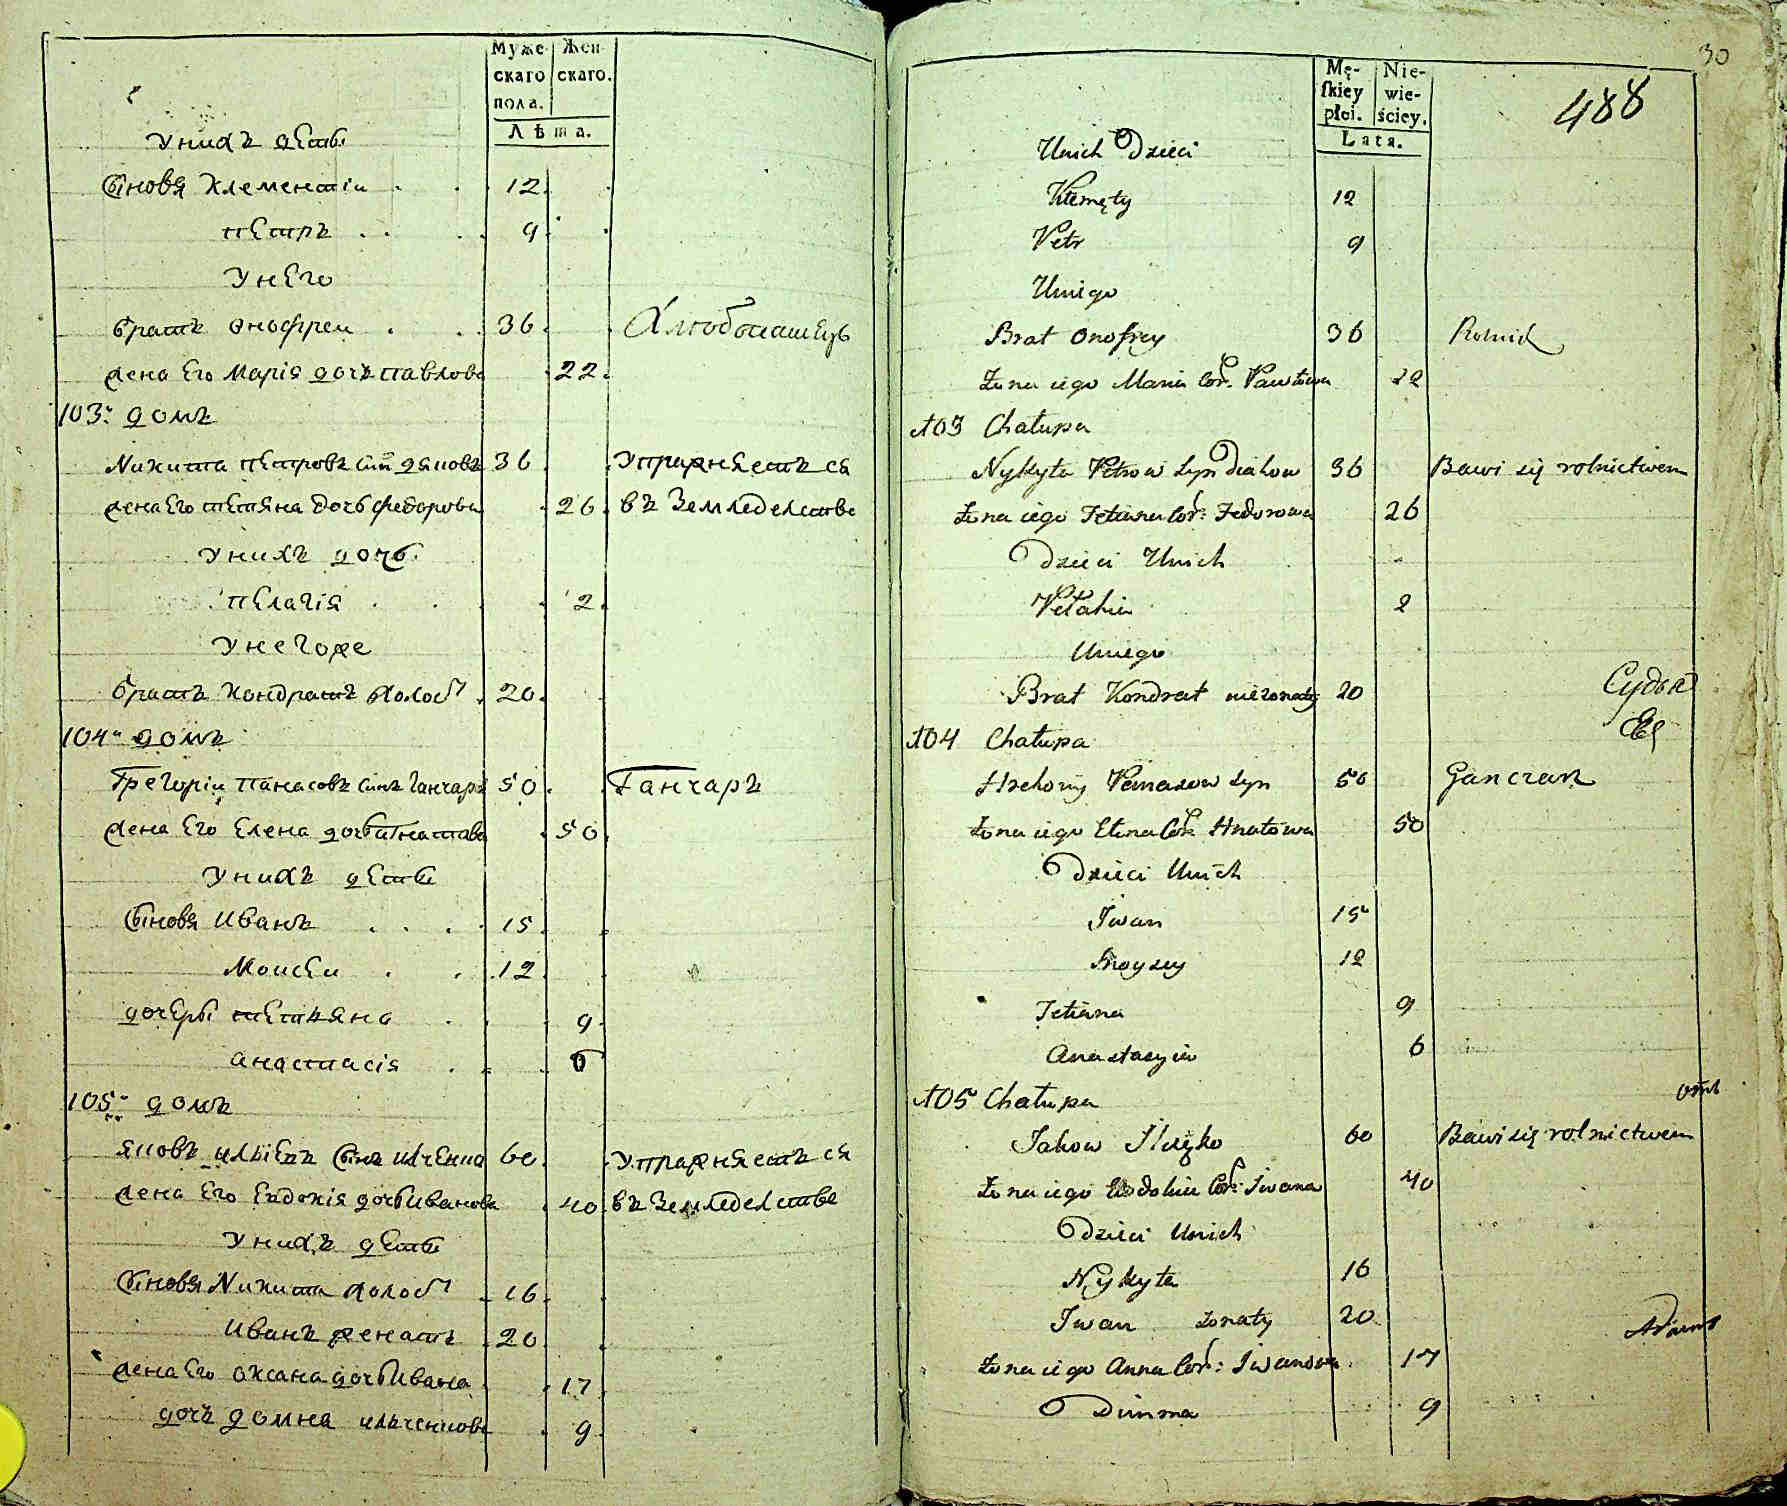 Муже Жен
скаго скаго.
пола.
Лѣта.
у нихъ дѣти
сыновя Клементiи 12
Петръ 9
у него
братъ Онофреи 36 Хлебопашецъ
жена его Марiя дочъ Павлова 22
103. домъ
Никита Петровъ синъ Дяковъ 36 упражняетъ ся
жена его Тетяна дочь Федорова 26 въ Земледелстве
у нихъ дочь
Пелагiя 2
у него же
братъ Кондратъ холость 20
104 домъ
Грегорiи Панасовъ синъ Ганчаръ 50 Ганчаръ
жена его Елена дочь Игнатова 50
у нихъ дети
сыновя Иванъ 15
Моисеи 12
дочеры Тетьяна 9
Анастасiя 6
105 домъ
Яковъ сынъ Илченко 60 упражняетъ ся
жена его Евдокiя дочь Иванова 40 въ Земледелстве
у нихъ дети
сыновя Никита холость 16
Иванъ женатъ 20
жена его Оксана дочь Ивана 17
дочъ Домна Илченкова 9
30
488
Mę- Nie-
ſkiey wie-
płci. ściey.
Lata.
Unich Dzieci
Klemęty 12
Petr 9
Uniego
Brat Onofrey 36 Rolnik
Zona iego Maria Cor: Pawłowa 22
103 Chałupa
Nykyta Petrow Syn Diakow 36 Bawi się rolnictwem
Zona iego Tetiana Cor: Fedorowa 26
Dzieci Unich
Pelahia 2
Uniego
Brat Kondrat nieżonaty 20
Судья
104 Chałupa
Hrehory Panasow Syn 50 Ganczarz
Zona iego Elena Cor: Hnatowa 50
Dzieci Unich
Iwan 15
Moysey 12
Tetiana 9
Anastazyia 6
105 Chałupa
Jakow Ilczeko 60 Bawi się rolnictwem
Zona iego Ewdokia Cor: Iwana 40
Dzieci Unich
Nykyta 16
Iwan żonaty 20
Zona iego Anna Cor: Iwanowa 17
Dimna 9